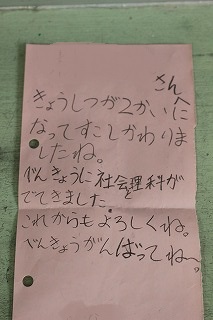 さんへ
きょうしつが2かいに
なってすこしかわりま
したね。
べんきょうに社会と理科が
でてきました。
これからもよろしくね。
べんきょうがんばってね〜。